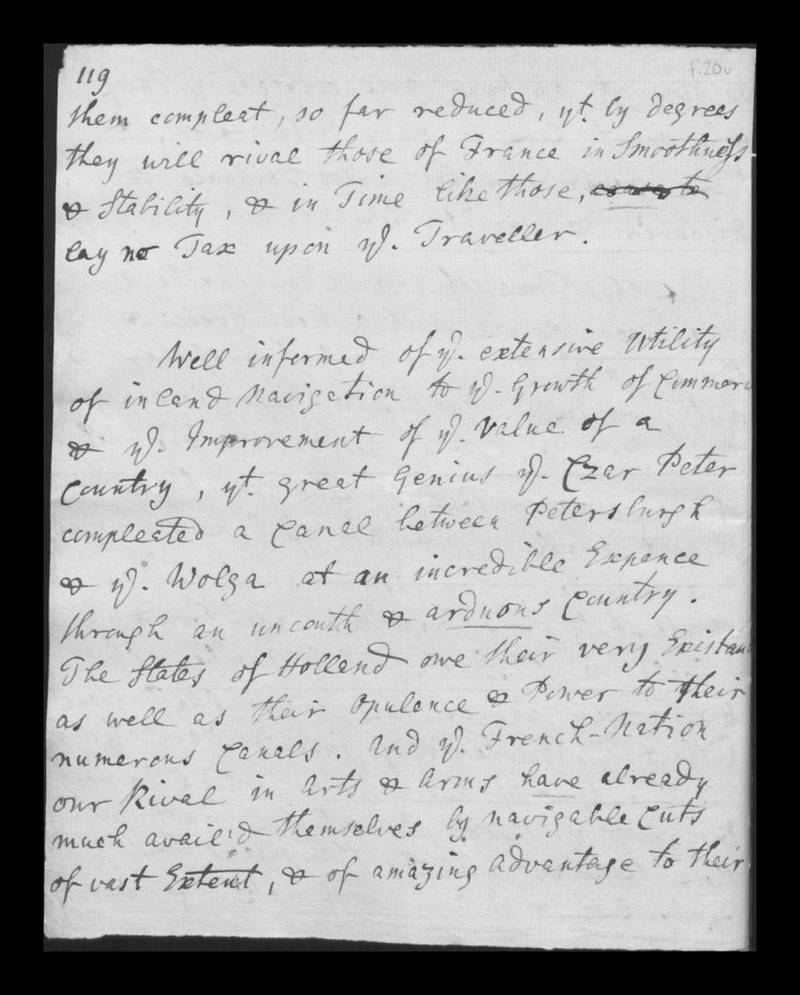 119
f.20v
them compleat, so far reduced, yt. by degrees
they will rival those of France in Smoothness
& Stability, & in Time like those,
lay no Tax upon ye. Traveller.
Well informed of ye. extensive Utility
of inland Navigation to ye. Growth of Commerc
& ye. Improvement of ye. Value of a
Country, yt. great Genius ye. Czar Peter
compleated a Canal between Petersburgh
& ye. Wolga at an incredible Expence
through an uncouth & arduous Country.
The States of Holland owe their very Existan
as well as their Opulence & Power to their
numerous Canals. And ye. French-Nation
our Rival in Arts & Arms have already
much avail'd themselves by navigable Cuts
of vast Extent, & of amazing Advantage to their